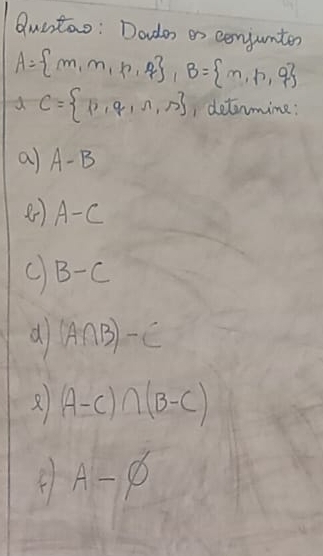 Questão: Dados os conjuntos
A={m, n, p, q}, B={n, p, q}
e C={p, q, r, s}, determine:
a) A-B
b) A-C
c) B-C
d) (A∩B)-C
e) (A-C)∩(B-C)
f) A-∅